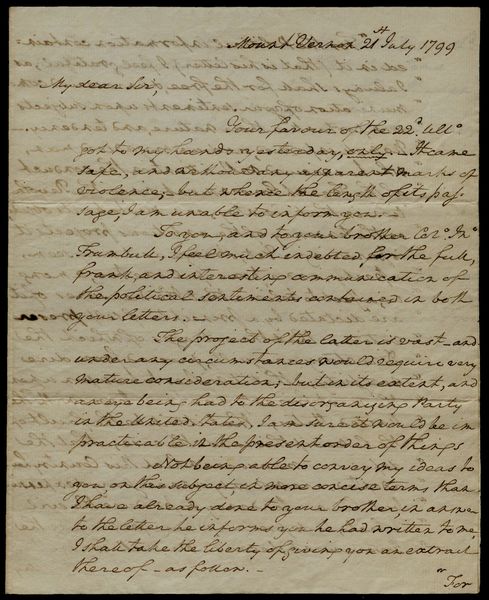 Mount Vernon 21st July 1799
My dear Sir,
Your favour of the 22d Ulto
got to my hands yesterday, only. It came
safe, and without any apparent marks of
violence; but whence the length of its pas-
sage, I am unable to inform you.
To you, and to your brother Colo Jno
Trumbull, I feel much indebted for the full,
frank, and interesting communication of
the political sentiments contained in both
your letters.
The project of the latter is vast—and
under any circumstances would require very
mature consideration; but in its extent, and
an eye being had to the disorganizing Party
in the United States, I am sure it would be im-
practicable in the present order of things
Not being able to convey my ideas to
you on the subject, in more concise terms than
I have already done to your brother in answer
to the letter he informs you he had written to me,
I shall take the liberty of giving you an extract
thereof—as follow.—
"For